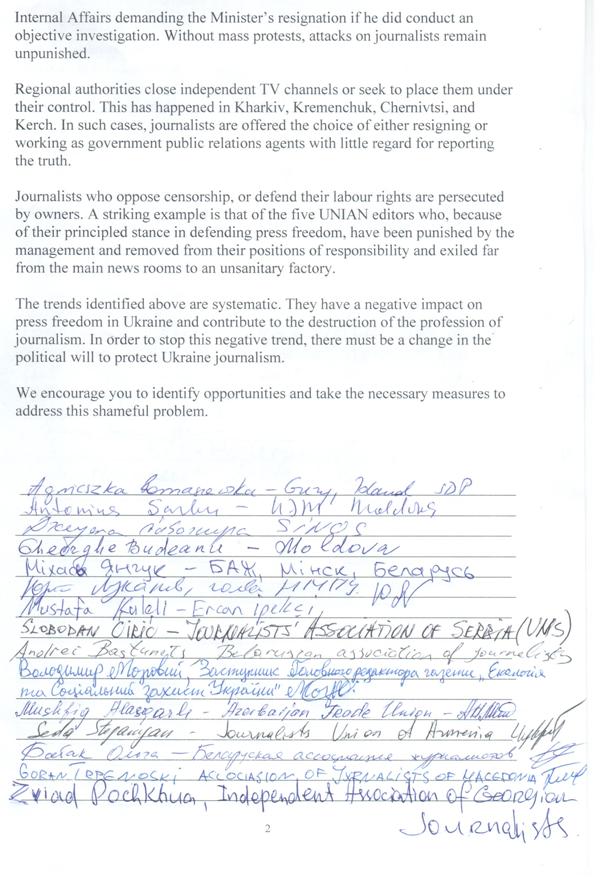 Internal Affairs demanding the Minister's resignation if he did conduct an
objective investigation. Without mass protests, attacks on journalists remain
unpunished.
Regional authorities close independent TV channels or seek to place them under
their control. This has happened in Kharkiv, Kremenchuk, Chernivtsi, and
Kerch. In such cases, journalists are offered the choice of either resigning or
working as government public relations agents with little regard for reporting
the truth.
Journalists who oppose censorship, or defend their labour rights are persecuted
by owners. A striking example is that of the five UNIAN editors who, because
of their principled stance in defending press freedom, have been punished by the
management and removed from their positions of responsibility and exiled far
from the main news rooms to an unsanitary factory.
The trends identified above are systematic. They have a negative impact on
press freedom in Ukraine and contribute to the destruction of the profession of
journalism. In order to stop this negative trend, there must be a change in the
political will to protect Ukraine journalism.
We encourage you to identify opportunities and take the necessary measures to
address this shameful problem.
Agnieszka Romaszewska - Guzy, Poland SDP
Antonina Sarbu - UJM Moldova
SINOS
Gheorghe Budeanu - Moldova
Міхась Янчук - БАЖ, Мінск, Беларусь
Юрій Луканів, голова НМПУ
Mustafa Kuleli - Ercan Ipekci,
SLOBODAN ĆIRIĆ - JOURNALISTS' ASSOCIATION OF SERBIA (UNS)
Andrei Bastunets Belarusian association of journalists
Володимир Мозовий, Заступник Головного редактора газети „Екологія
та Соціальний захист України"
Mushfig Alasgarli - Azerbaijan Trade Union -
Seda Stepanyan - Journalists Union of Armenia
Бабак Ольга - Беларуская ассоциация журналистов
GORAN TRPENOSKI ACCOCIASION OF JYRNALISTS OF MACEDONIA
Zviad Pochkhua, Independent Association of Georgian
Journalists
2